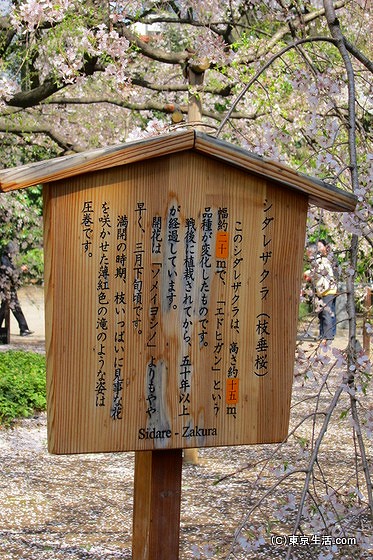 シダレザクラ（枝垂桜）
このシダレザクラは、高さ約十五m、
幅約二十mで、「エドヒガン」という
品種が変化したものです。
戦後に植栽されてから、五十年以上
が経過しています。
開花は「ソメイヨシノ」よりもやや
早く、三月下旬頃です。
満開の時期、枝いっぱいに見事な花
を咲かせた薄紅色の滝のような姿は
圧巻です。
Sidare - Zakura
(C)東京生活.com